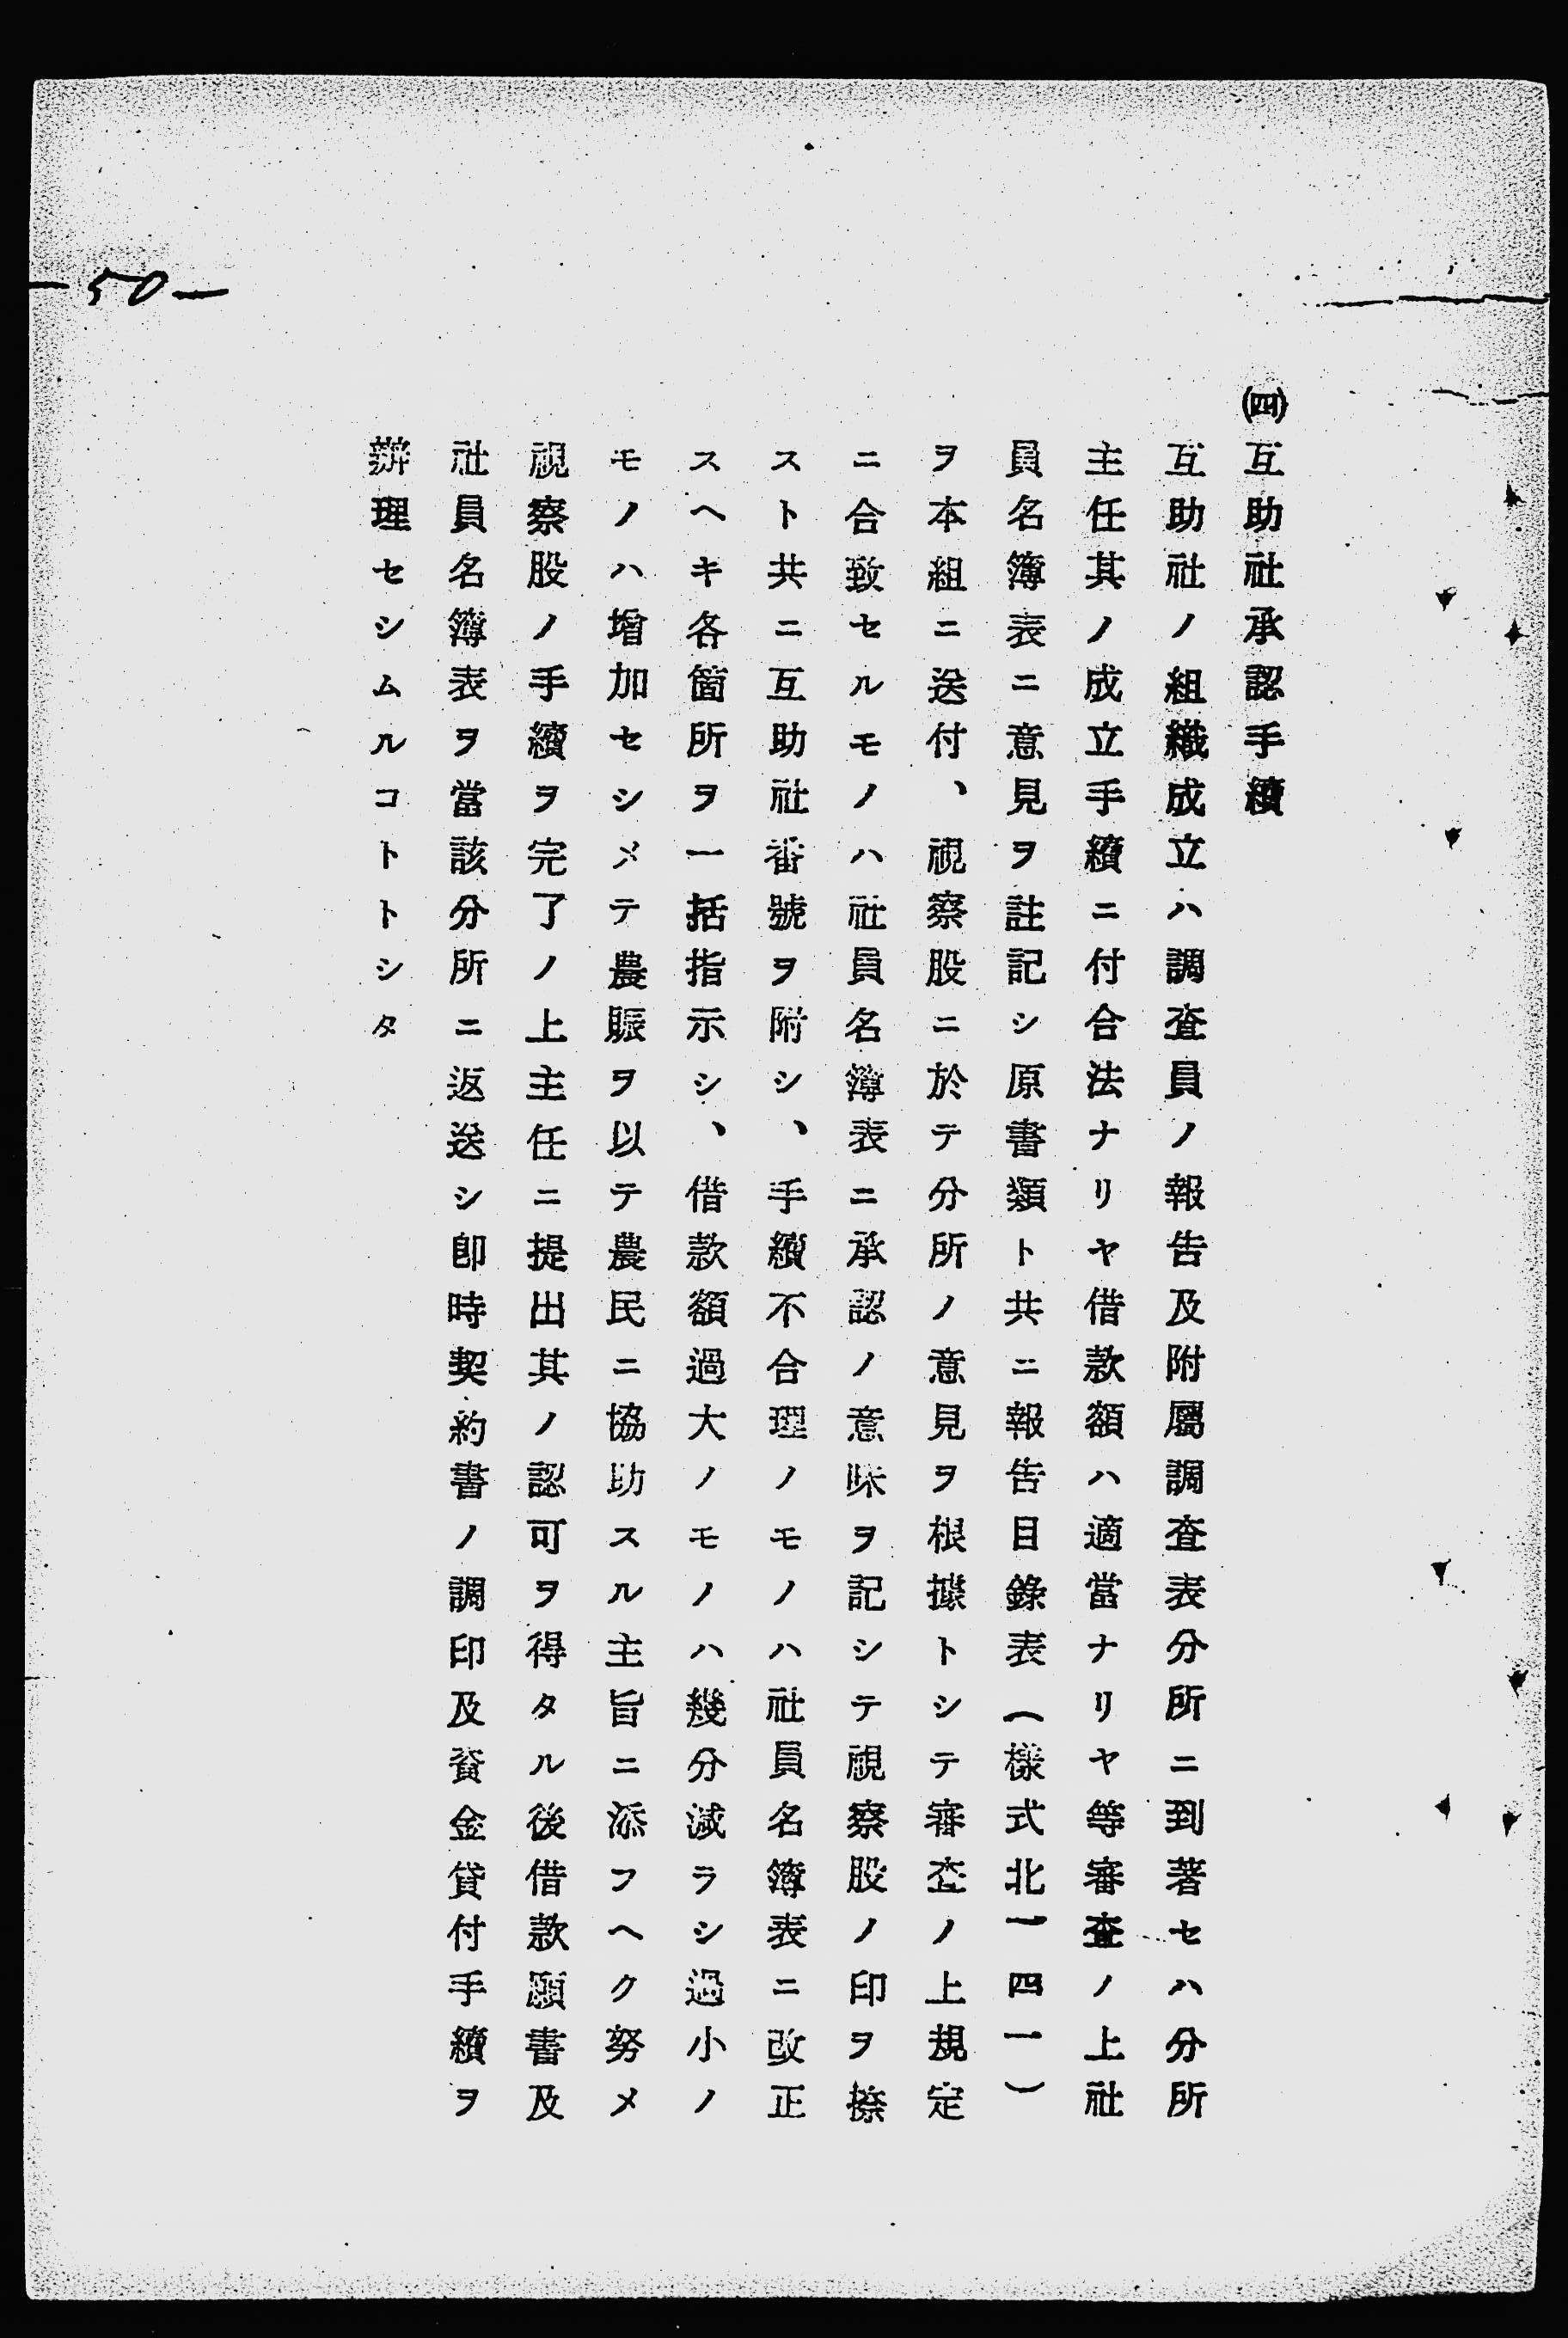 (四)互助社承認手續
互助社ノ組織成立ハ調査員ノ報告及附屬調査表分所ニ到著セハ分所
主任其ノ成立手續ニ付合法ナリヤ借款額ハ適當ナリヤ等審査ノ上社
員名簿表ニ意見ヲ註記シ原書類ト共ニ報告目錄表(樣式北一四一)
ヲ本組ニ送付、視察股ニ於テ分所ノ意見ヲ根據トシテ審査ノ上規定
ニ合致セルモノハ社員名簿表ニ承認ノ意味ヲ記シテ視察股ノ印ヲ捺
スト共ニ互助社番號ヲ附シ、手續不合理ノモノハ社員名簿表ニ改正
スヘキ各箇所ヲ一括指示シ、借款額過大ノモノハ幾分減ラシ過小ノ
モノハ增加セシメテ農賑ヲ以テ農民ニ協助スル主旨ニ添フヘク努メ
視察股ノ手續ヲ完了ノ上主任ニ提出其ノ認可ヲ得タル後借款願書及
社員名簿表ヲ當該分所ニ返送シ卽時契約書ノ調印及資金貸付手續ヲ
辦理セシムルコトトシタ
—50—